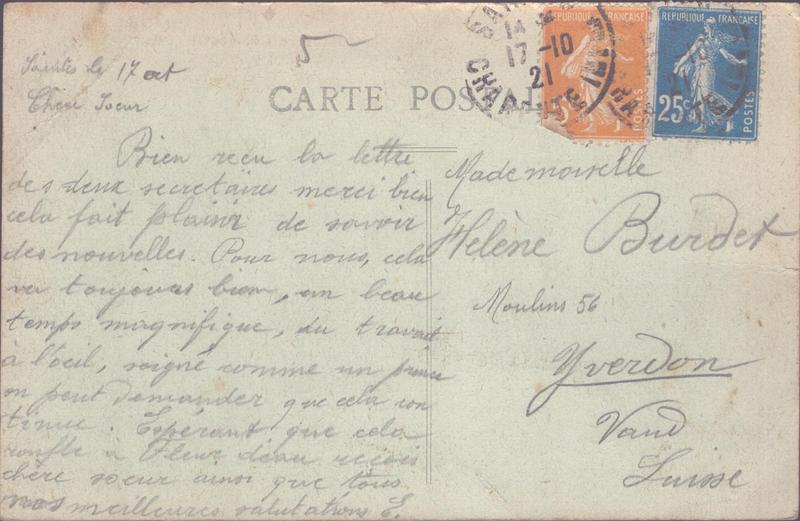 5
Saintes le 17 oct
Chère Soeur
CARTE POSTALE
14
17-10
21
REPUBLIQUE FRANÇAISE
REPUBLIQUE FRANÇAISE
25c
POSTES
Bien reçu la lettre
des deux secretaires merci bien
cela fait plaisir de savoir
des nouvelles. Pour nous, cela
va toujours bien, un beau
temps magnifique, du travail
à l'oeil, soigné comme un prince
on peut demander que cela con
tinue. Espérant que cela
ronfle à Fleur d'eau reçois
chère soeur ainsi que tous
nos meilleures salutations E.
Mademoiselle
Helène Burdet
Moulins 56
Yverdon
Vaud
Suisse